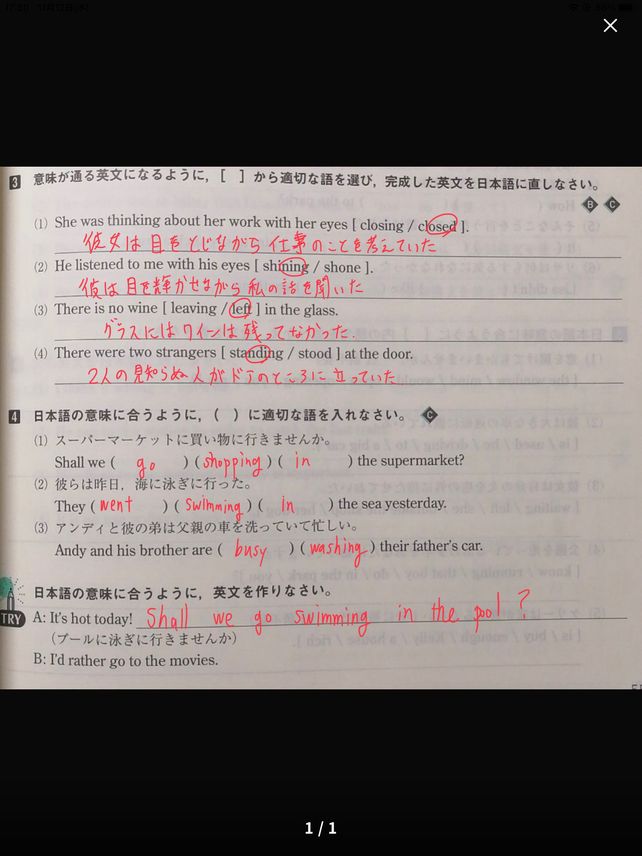 3 意味が通る英文になるように，[ ] から適切な語を選び，完成した英文を日本語に直しなさい。
B C
(1) She was thinking about her work with her eyes [ closing / closed ].
彼女は目をとじながら仕事のことを考えていた
(2) He listened to me with his eyes [ shining / shone ].
彼は目を輝かせながら私の話を聞いた
(3) There is no wine [ leaving / left ] in the glass.
グラスにはワインは残ってなかった.
(4) There were two strangers [ standing / stood ] at the door.
2人の見知らぬ人がドアのところに立っていた
4 日本語の意味に合うように，( ) に適切な語を入れなさい。 C
(1) スーパーマーケットに買い物に行きませんか。
Shall we ( go ) ( shopping ) ( in ) the supermarket?
(2) 彼らは昨日，海に泳ぎに行った。
They ( went ) ( swimming ) ( in ) the sea yesterday.
(3) アンディと彼の弟は父親の車を洗っていて忙しい。
Andy and his brother are ( busy ) ( washing ) their father's car.
日本語の意味に合うように，英文を作りなさい。
TRY A: It's hot today! Shall we go swimming in the pool ?
(プールに泳ぎに行きませんか)
B: I'd rather go to the movies.
1 / 1